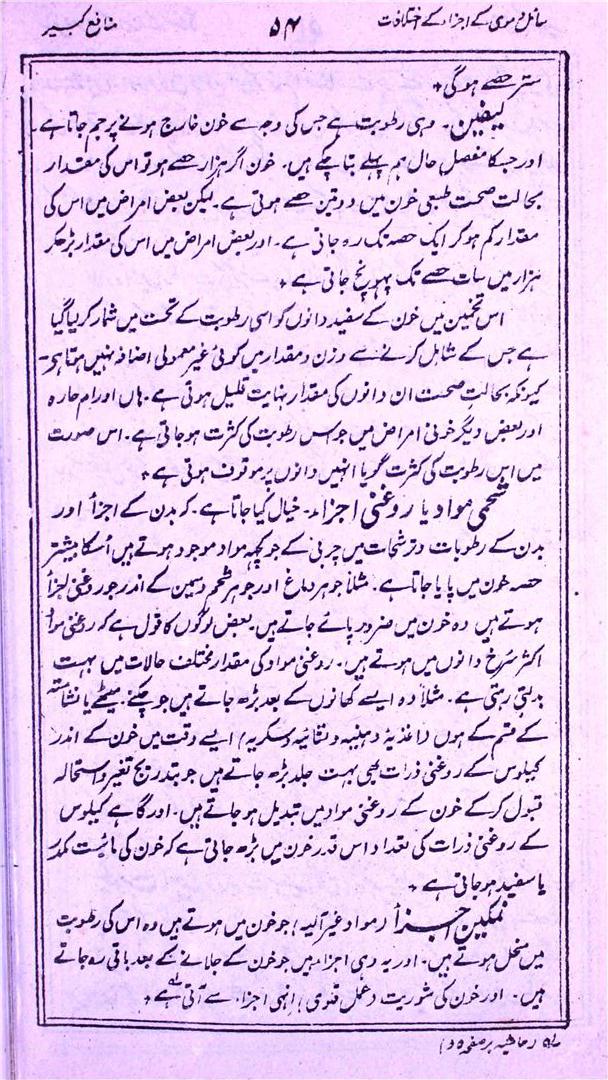 سائل دموی کے اجزاء کے اختلافات
۵۴
منافع کبیر
ستر حصے ہوگی ٭
لیفین۔ وہی رطوبت ہے جس کی وجہ سے خون خارج ہونے پر جم جاتا ہے۔
اور جسکا مفصل حال ہم پہلے بتا چکے ہیں۔ خون اگر ہزار حصے ہو تو اس کی مقدار
بحالت صحت طبعی خون میں دو و تین حصے ہوتی ہے۔ لیکن بعض امراض میں اس کی
مقدار کم ہو کر ایک حصہ تک رہ جاتی ہے۔ اور بعض امراض میں اس کی مقدار بڑھکر
ہزار میں سات حصے تک پہونچ جاتی ہے ٭
اس تخمین میں خون کے سفید دانوں کو اسی رطوبت کے تحت میں شمار کر لیا گیا
ہے جس کے شامل کرنے سے وزن و مقدار میں کوئی غیر معمولی اضافہ نہیں ہوتا ہی۔
کیونکہ بحالت صحت ان دانوں کی مقدار نہایت قلیل ہوتی ہے۔ ہاں اورام حارہ
اور بعض دیگر خونی امراض میں جو اس رطوبت کی کثرت ہو جاتی ہے۔ اس صورت
میں اس رطوبت کی کثرت گویا انہیں دانوں پر موقوف ہوتی ہے ٭
شحمی مواد یا روغنی اجزاء۔ خیال کیا جاتا ہے۔ کہ بدن کے اجزأ اور
بدن کے رطوبات و ترشحات میں چربی کے جو کچھ مواد موجود ہوتے ہیں اُسکا بیشتر
حصہ خون میں پایا جاتا ہے۔ مثلاً جوہر دماغ اور جوہر شحم و سمین کے اندر جو روغنی اجزأ
ہوتے ہیں وہ خون میں ضرور پائے جاتے ہیں۔ بعض لوگوں کا قول ہے کہ روغنی مواد
اکثر سُرخ دانوں میں ہوتے ہیں۔ روغنی مواد کی مقدار مختلف حالات میں بہت
بدلتی رہتی ہے۔ مثلاً وہ ایسے کھانوں کے بعد بڑھ جاتے ہیں جو چکنے۔ میٹھے یا نشاستہ
کے قسم کے ہوں (اغذیہ دہنیہ و نشائیہ و سکریہ) ایسے وقت میں خون کے اندر
کیلوس کے روغنی ذرات بھی بہت جلد بڑھ جاتے ہیں جو بتدریج تغیر و استحالہ
قبول کر کے خون کے روغنی مواد میں تبدیل ہو جاتے ہیں۔ اور گاہے کیلوس
کے روغنی ذرات کی تعداد اس قدر خون میں بڑھ جاتی ہے کہ خون کی مائیت مکدر
یا سفید ہو جاتی ہے ٭
نمکین اجزأ (مواد غیر آلیہ) جو خون میں ہوتے ہیں وہ اس کی رطوبت
میں منحل ہوتے ہیں۔ اور یہ وہی اجزاء ہیں جو خون کے جلانے کے بعد باقی رہ جاتے
ہیں۔ اور خون کی شوریت (عمل قلوی) انہی اجزاء سے آتی ہے ٭
(حاشیہ بر صفحہ ۵۵)